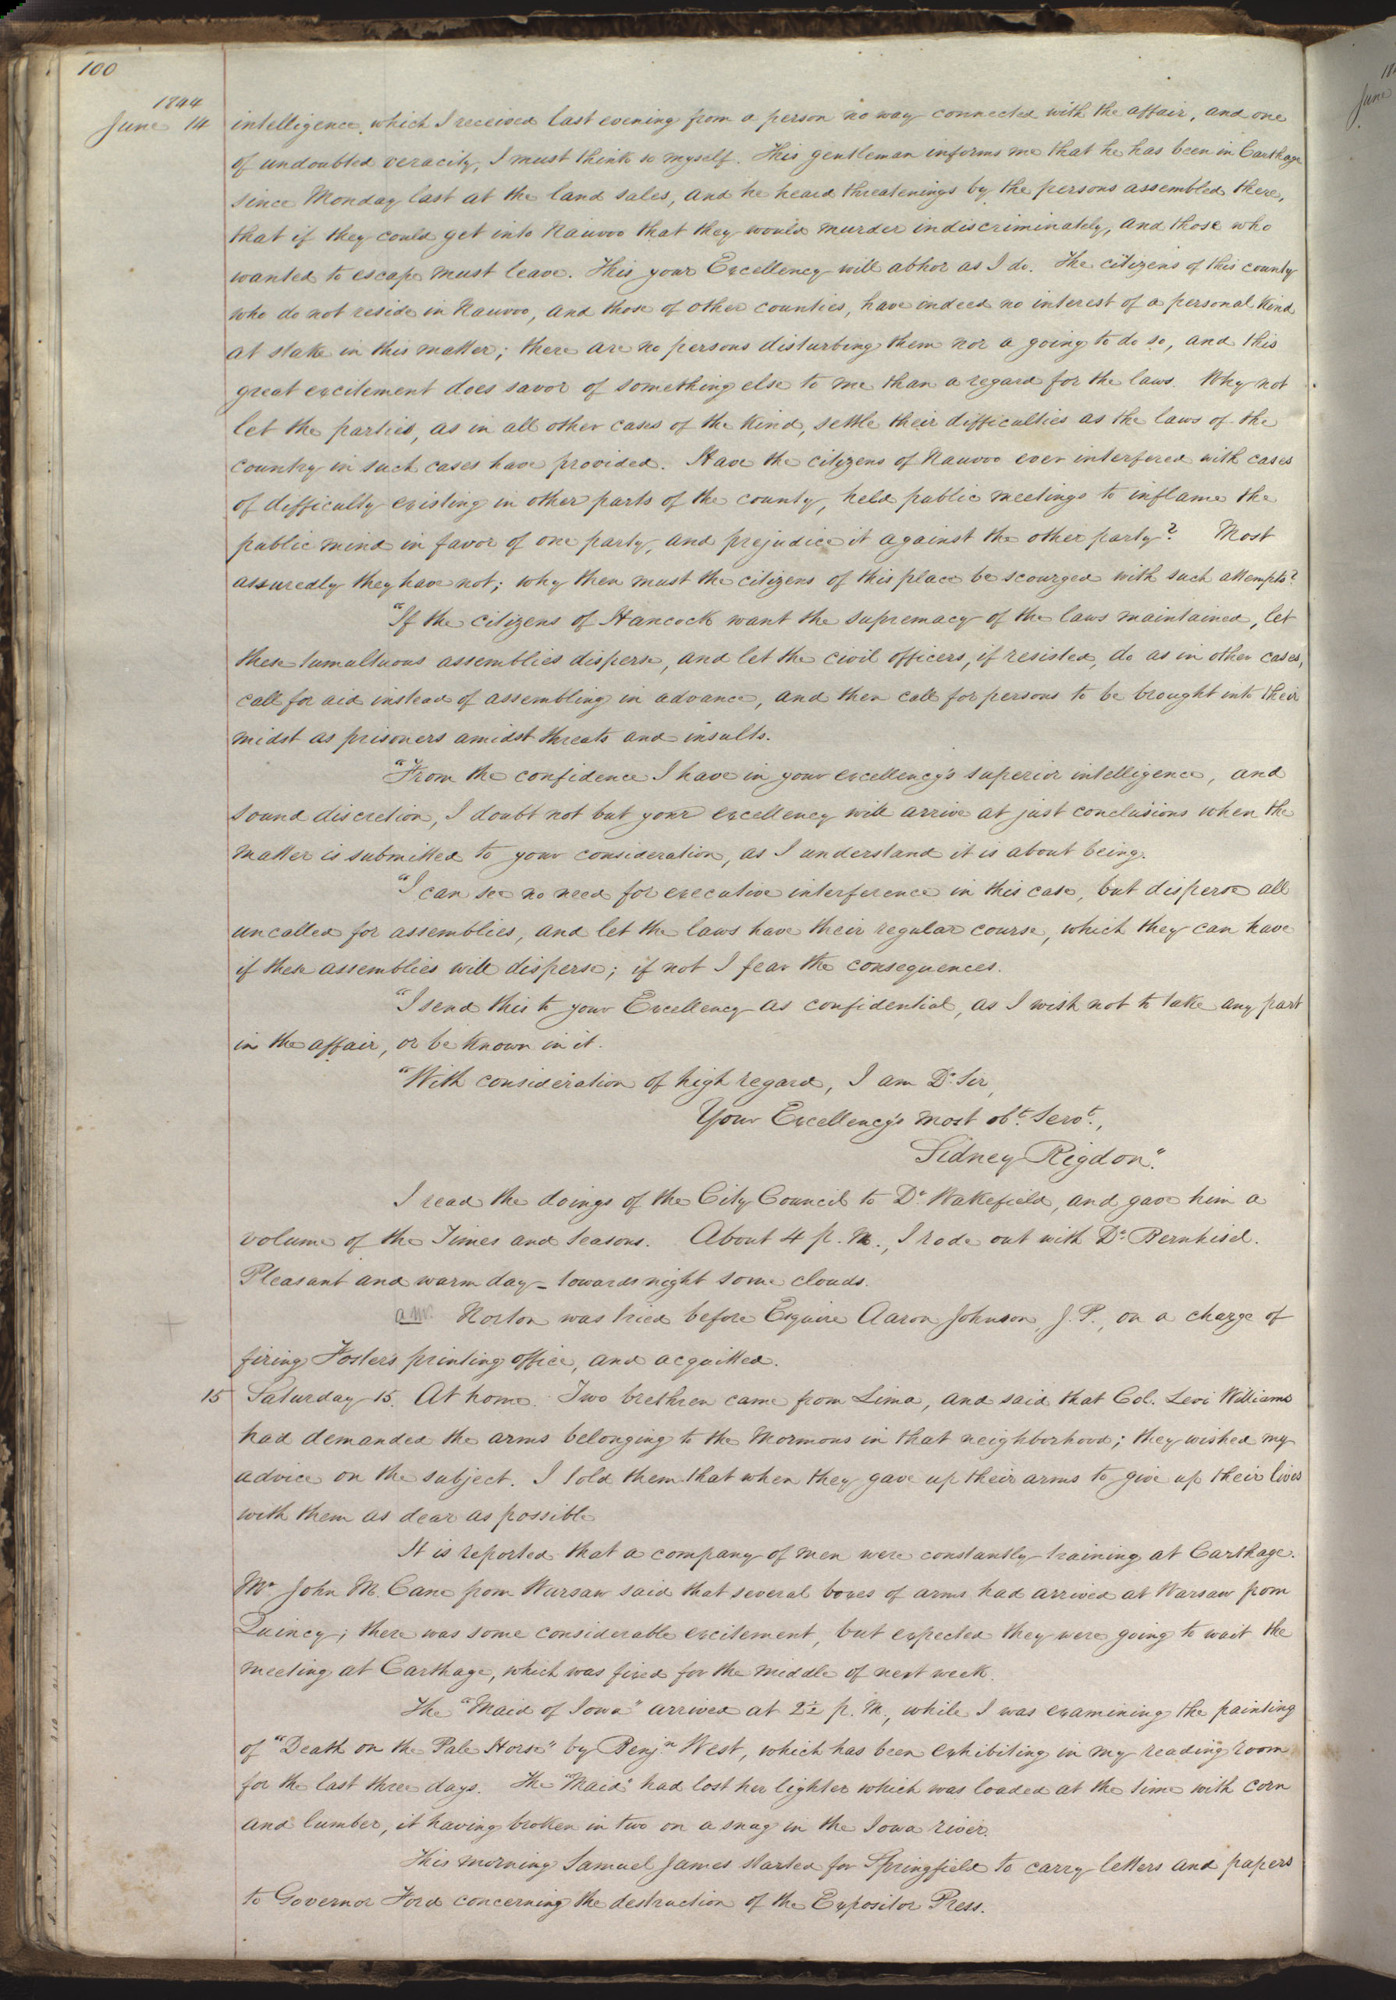 100
1844
June 14
intelligence, which I received last evening from a person no way connected with the affair, and one
of undoubted veracity, I must think so myself. This gentleman informs me that he has been in Carthage
since Monday last at the land sales, and he heard threatenings by the persons assembled there,
that if they could get into Nauvoo that they would murder indiscriminately, and those who
wanted to escape must leave. This your Excellency will abhor as I do. The citizens of this county
who do not reside in Nauvoo, and those of other counties, have indeed no interest of a personal kind
at stake in this matter; there are no persons disturbing them nor a going to do so, and this
great excitement does savor of something else to me than a regard for the laws. Why not
let the parties, as in all other cases of the kind, settle their difficulties as the laws of the
country in such cases have provided. Have the citizens of Nauvoo ever interfered with cases
of difficulty existing in other parts of the county, held public meetings to inflame the
public mind in favor of one party, and prejudice it against the other party? Most
assuredly they have not; why then must the citizens of this place be scourged with such attempts?
"If the citizens of Hancock want the supremacy of the laws maintained, let
these tumultuous assemblies disperse, and let the civil officers, if resisted, do as in other cases,
call for aid instead of assembling in advance, and then call for persons to be brought into their
midst as prisoners amidst threats and insults.
"From the confidence I have in your excellency's superior intelligence, and
sound discretion, I doubt not but your excellency will arrive at just conclusions when the
matter is submitted to your consideration, as I understand it is about being.
"I can see no need for executive interference in this case, but disperse all
uncalled for assemblies, and let the laws have their regular course, which they can have
if these assemblies will disperse; if not I fear the consequences.
"I send this to your Excellency as confidential, as I wish not to take any part
in the affair, or be known in it.
"With consideration of high regard, I am Dr. Sir,
Your Excellency's most obt. Servt.,
Sidney Rigdon."
I read the doings of the City Council to Dr. Wakefield, and gave him a
volume of the Times and Seasons. About 4 p. m., I rode out with Dr. Bernhisel.
Pleasant and warm day – towards night some clouds.
a.m. Norton was tried before Esquire Aaron Johnson, J. P., on a charge of
firing Foster's printing office, and acquitted.
15 Saturday 15. At home. Two brethren came from Lima, and said that Col. Levi Williams
had demanded the arms belonging to the Mormons in that neighborhood; they wished my
advice on the subject. I told them that when they gave up their arms to give up their lives
with them as dear as possible
It is reported that a company of men were constantly training at Carthage.
Mr John M. Cane from Warsaw said that several boxes of arms had arrived at Warsaw from
Quincy; there was some considerable excitement, but expected they were going to wait the
meeting at Carthage, which was fixed for the middle of next week.
The "Maid of Iowa" arrived at 2½ p. m., while I was examining the painting
of "Death on the Pale Horse" by Benjn West, which has been exhibiting in my reading room
for the last three days. The "Maid" had lost her lighter which was loaded at the time with corn
and lumber, it having broken in two on a snag in the Iowa river.
This morning Samuel James started for Springfield to carry letters and papers
to Governor Ford concerning the destruction of the Expositor Press.
June